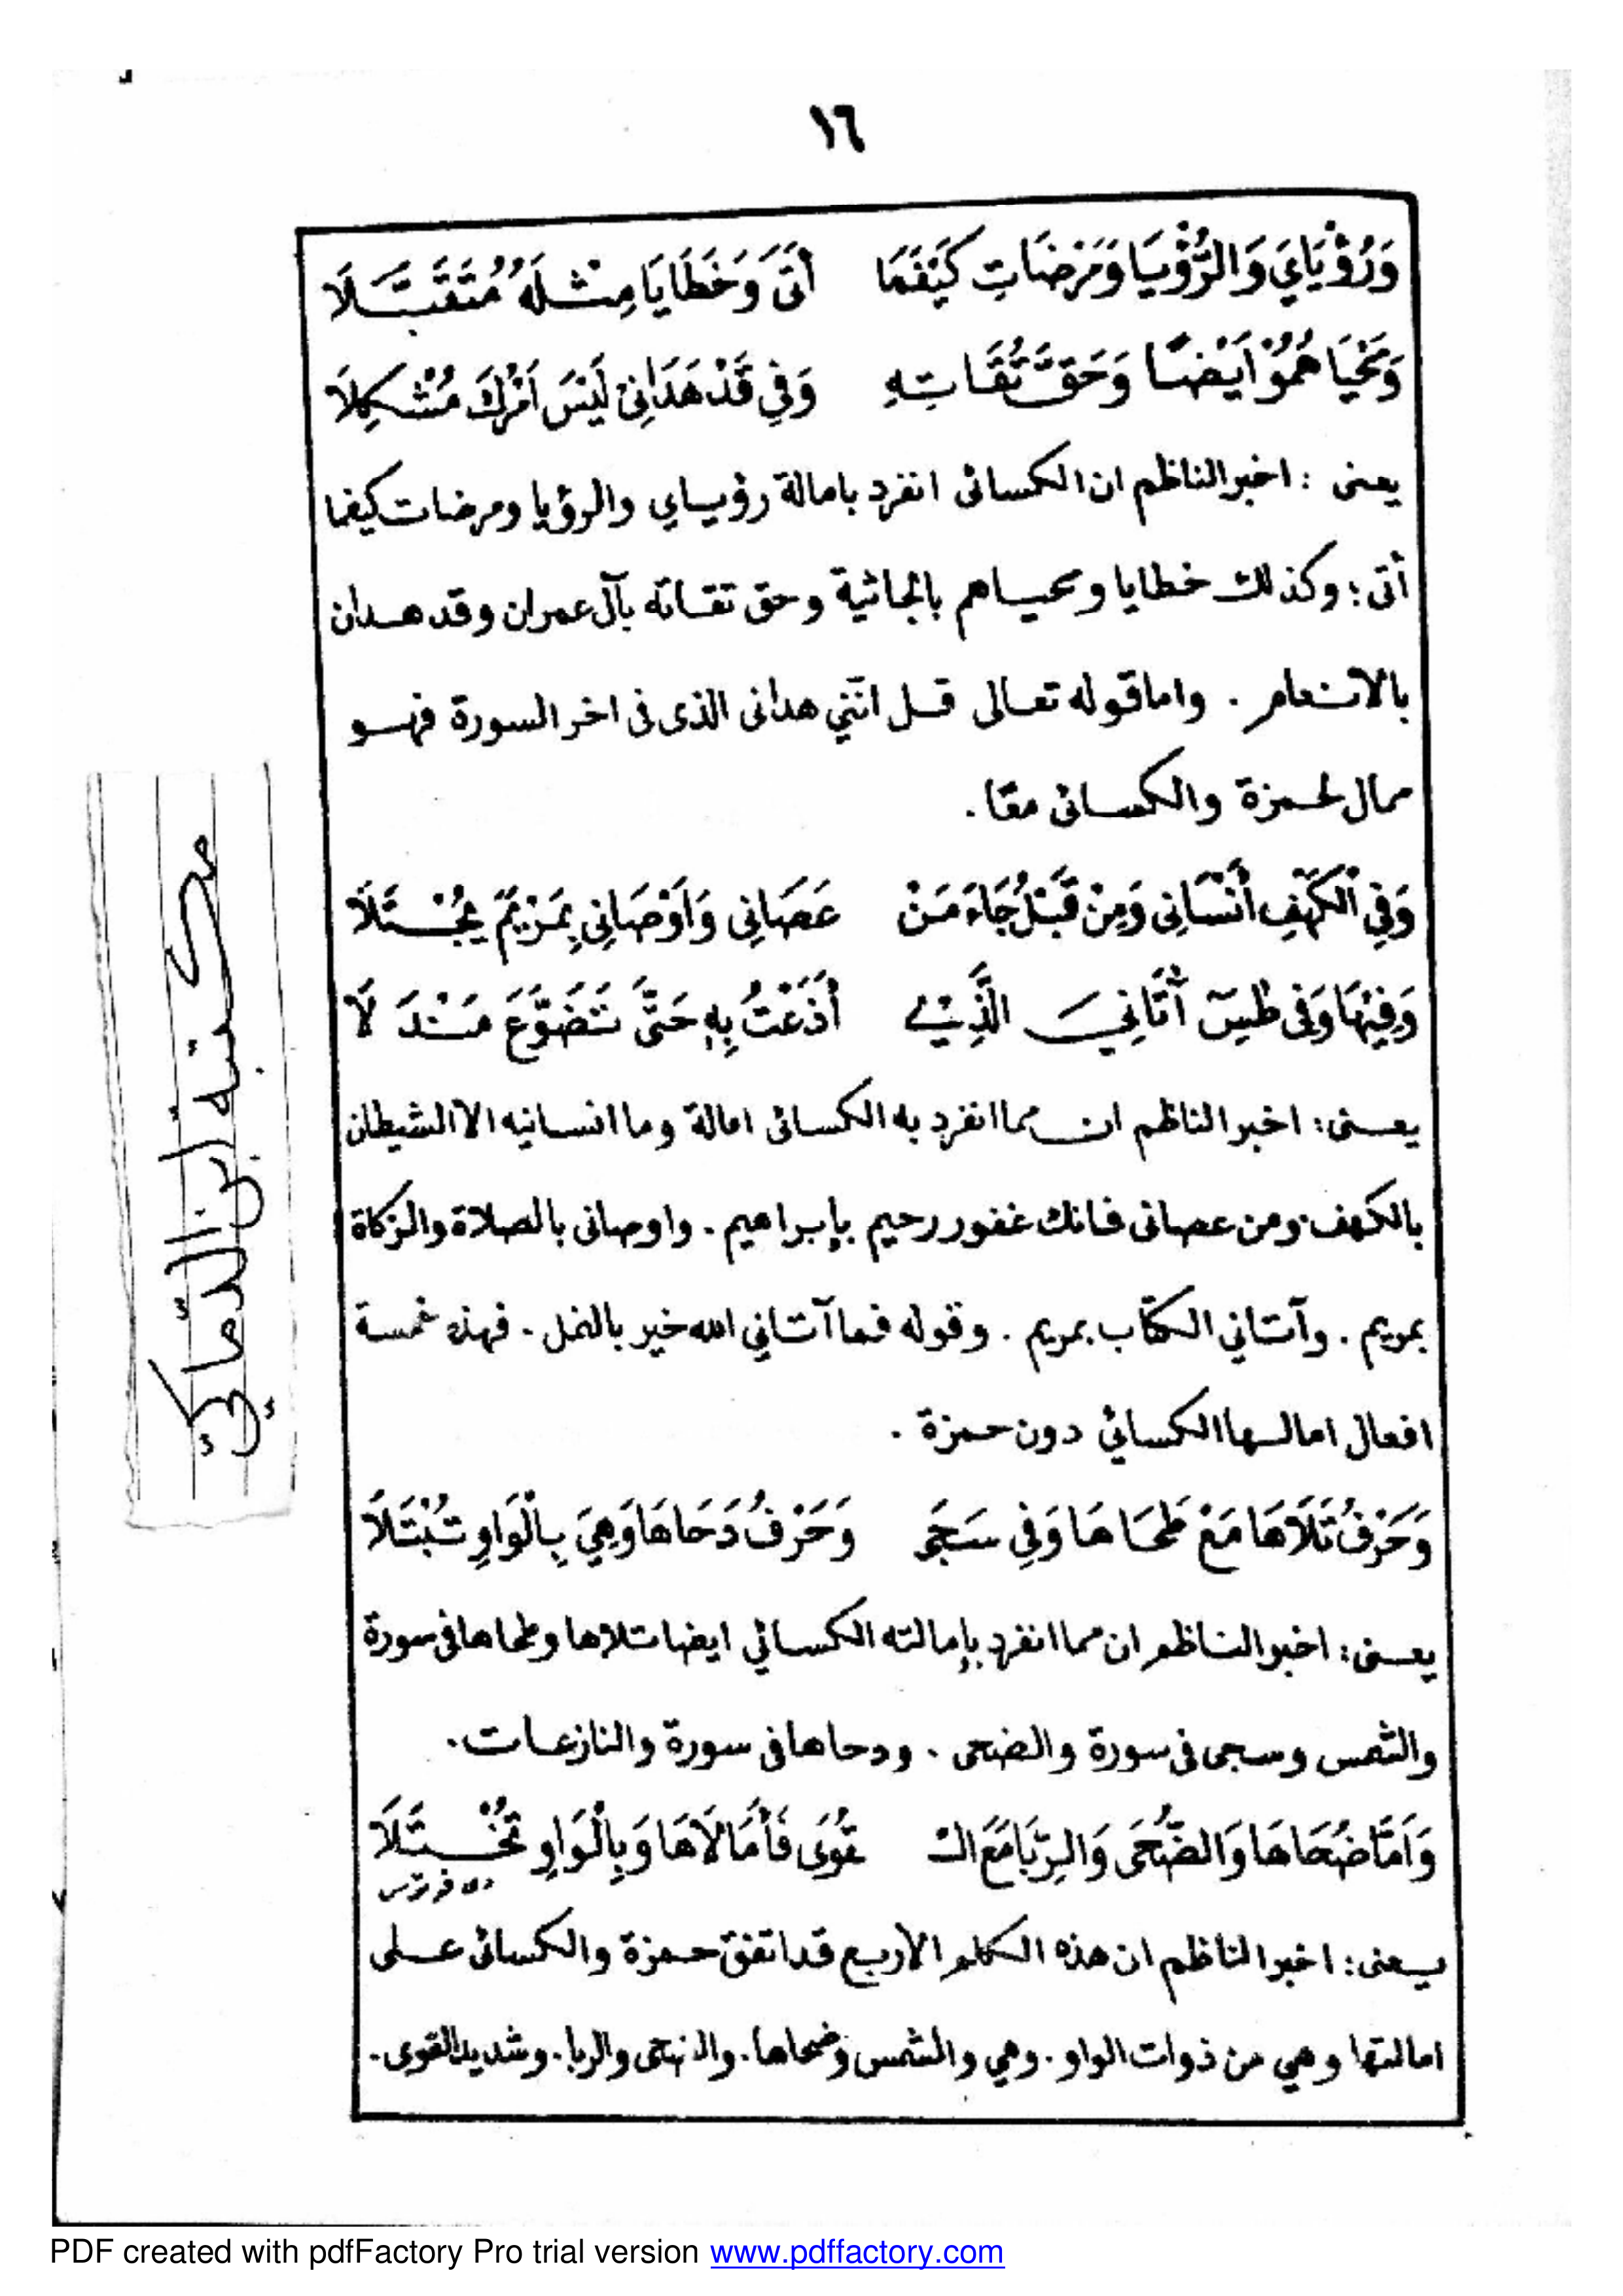 ١٦
وَرُؤْيَايَ وَالرُّؤْيَا وَمَرْضَاتِ كَيْفَمَا أَتَى وَخَطَايَا مِثْلُهُ مُتَقَبَّلَا
وَمَحْيَاهُمُوْ اَيْضًا وَحَقَّ تُقَاتِهِ وَفِي قَدْ هَدَانِيْ لَيْسَ اَمْرُكَ مُشْكِلَا
يعنى : اخبر الناظم ان الكسائى انفرد بامالة رؤياي والرؤيا ومرضات كيفما
أتى ؛ وكذلك خطايا ومحياهم بالجاثية وحق تقاته بآل عمران وقد هدان
بالانعام . واما قوله تعالى قل انّني هدانى الذى فى اخر السورة فهو
ممال لحمزة والكسائى معًا .
وَفِي الْكَهْفِ أَنْسَانِى وَمِنْ قَبْلُ جَاءَ مَنْ عَصَانِى وَاَوْصَانِى بِمَرْيَمَ يُجْتَلَا
وَفِيْهَا وَفِى طٰسٓ آتَانِيَ الَّذِيْ أَذَعْتُ بِهِ حَتَّى تَضَوَّعَ مَنْدَلَا
يعنى : اخبر الناظم ان مما انفرد به الكسائى امالة وما انسانيه الا الشيطان
بالكهف ومن عصانى فانك غفور رحيم بإبراهيم . واوصانى بالصلاة والزكاة
بمريم . وآتاني الكتاب بمريم . وقوله فما آتاني الله خير بالنمل . فهذه خمسة
افعال امالها الكسائي دون حمزة .
وَحَرْفُ تَلَاهَا مَعْ طَحَاهَا وَفِي سَجَى وَحَرْفُ دَحَاهَا وَهِيَ بِالْوَاوِ تُبْتَلَا
يعنى : اخبر الناظم ان مما انفرد بإمالته الكسائي ايضا تلاها وطحاها فى سورة
والشمس وسجى فى سورة والضحى . ودحاها فى سورة والنازعات .
وَاَمَّا ضُحَاهَا وَالضُّحَى وَالرِّبَا مَعَ الْ قُوَى فَأَمَالَاهَا وَبِالْوَاوِ تُخْتَلَا
يعنى : اخبر الناظم ان هذه الكلم الأربع قد اتفق حمزة والكسائى على
امالتها وهي من ذوات الواو . وهي والشمس وضحاها . والضحى والربا . وشديد القوى .
مكتبة ابن الدّماكيّ
PDF created with pdfFactory Pro trial version www.pdffactory.com